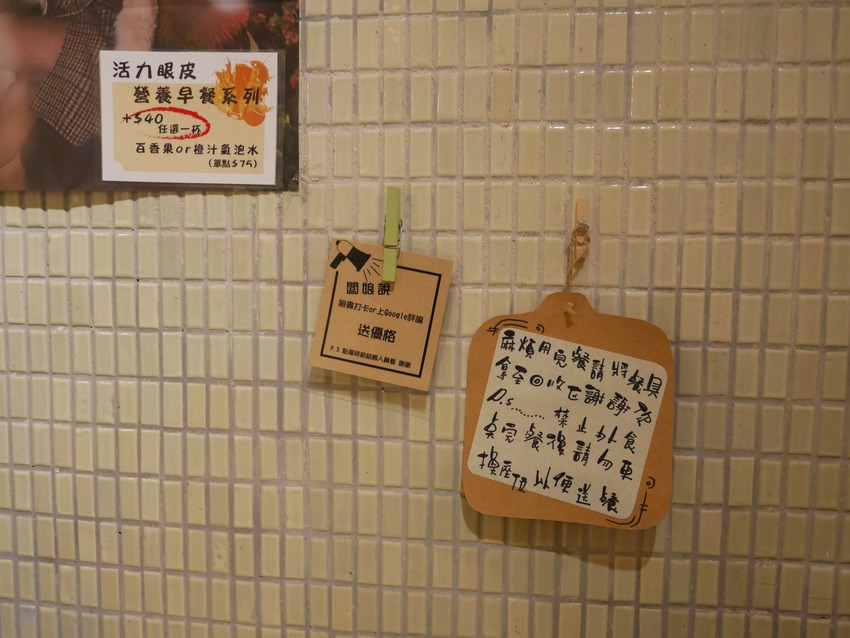 活力眼皮
營養早餐系列
+$40
任選一杯
百香果or橙汁氣泡水
(單點$75)
闆娘說
臉書打卡or上Google評論
送優格
P.S 點餐時給結帳人員看 謝謝
麻煩用完餐請將餐具
拿至回收區謝謝您
P.s....... 禁止外食
桌完餐後請勿更
換座位 以便送餐